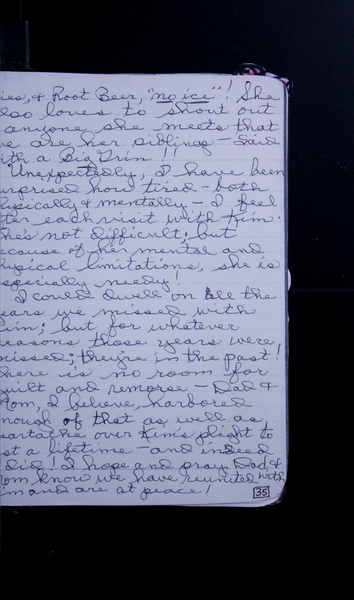 ies, & Root Beer, "no ice"! She
lso loves to shout out
anyone she meets that
e are her siblings - said
ith a Big Grin!!
Unexpectedly, I have been
urprised how tired - both
hysically & mentally - I feel
ter each visit with Kim.
he's not difficult; but
cause of her mental and
hysical limitations, she is
specially needy!
I could dwell on all the
ears we missed with
im; but for whatever
easons those years were
missed; they're in the past!
here is no room for
uilt and remorse - Dad &
om, I believe, harbored
nough of that as well as
eartache over Kim's plight to
st a lifetime - and indeed
did! I hope and pray Dad &
om know we have reunited with
im and are at peace!
35